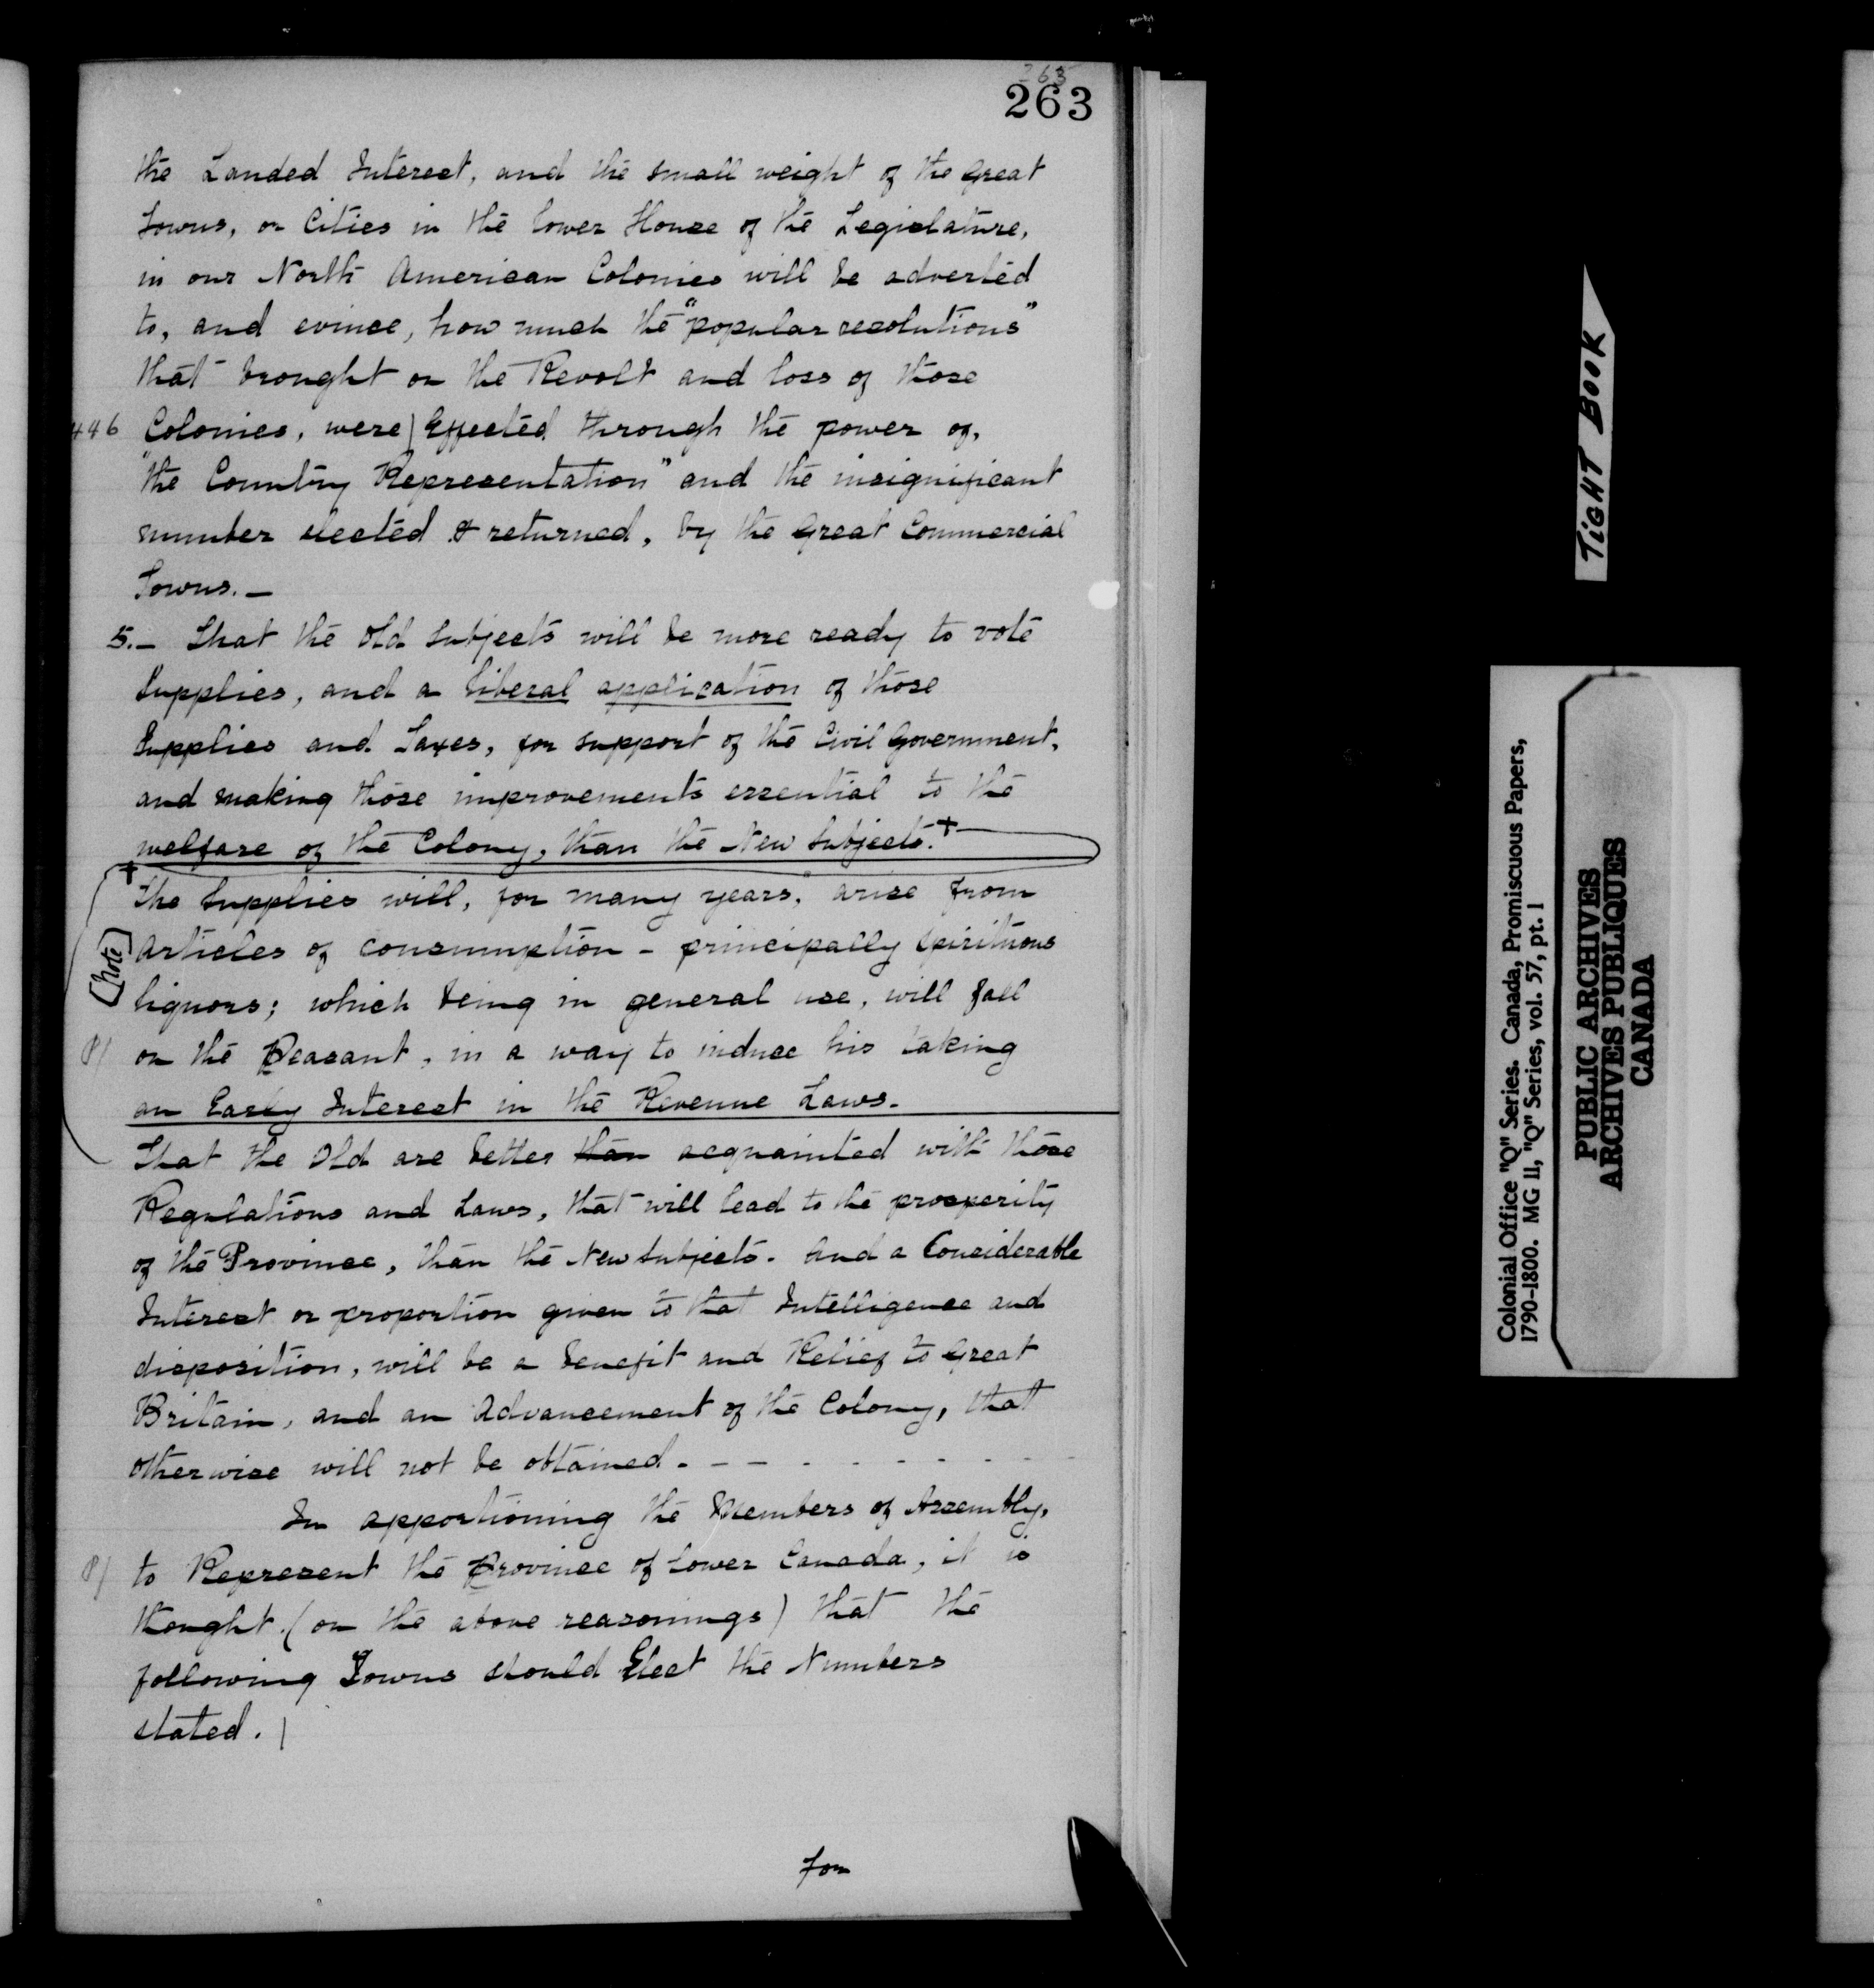 263
263
the Landed Interest, and the small weight of the Great
Towns, or Cities in the lower House of the Legislature,
in our North American Colonies will be adverted
to, and evince, how much the "popular resolutions"
that brought on the Revolt and loss of those
446 Colonies, were | Effected through the power of,
"the Country Representation" and the insignificant
number elected & returned, by the Great Commercial
Towns.—
5.— That the Old Subjects will be more ready to vote
Supplies, and a liberal application of those
Supplies and Taxes, for support of the Civil Government,
and making those improvements essential to the
welfare of the Colony, than the New Subjects.+
+ The Supplies will, for many years, arise from
[Note] Articles of consumption - principally Spirituous
liquors; which being in general use, will fall
P/ on the Peasant, in a way to induce his taking
an Early Interest in the Revenue Laws.
That the Old are better than acquainted with those
Regulations and Laws, that will lead to the prosperity
of the Province, than the New Subjects. And a Considerable
Interest or proportion given to that Intelligence and
disposition, will be a benefit and Relief to Great
Britain, and an Advancement of the Colony, that
otherwise will not be obtained. - - - - - - - - -
In apportioning the Members of Assembly,
P/ to Represent the Province of Lower Canada, it is
thought (on the above reasonings) that the
following Towns should Elect the Numbers
stated. |
for
TIGHT BOOK
Colonial Office "Q" Series. Canada, Promiscuous Papers,
1790-1800. MG 11, "Q" Series, vol. 57, pt. 1
PUBLIC ARCHIVES
ARCHIVES PUBLIQUES
CANADA